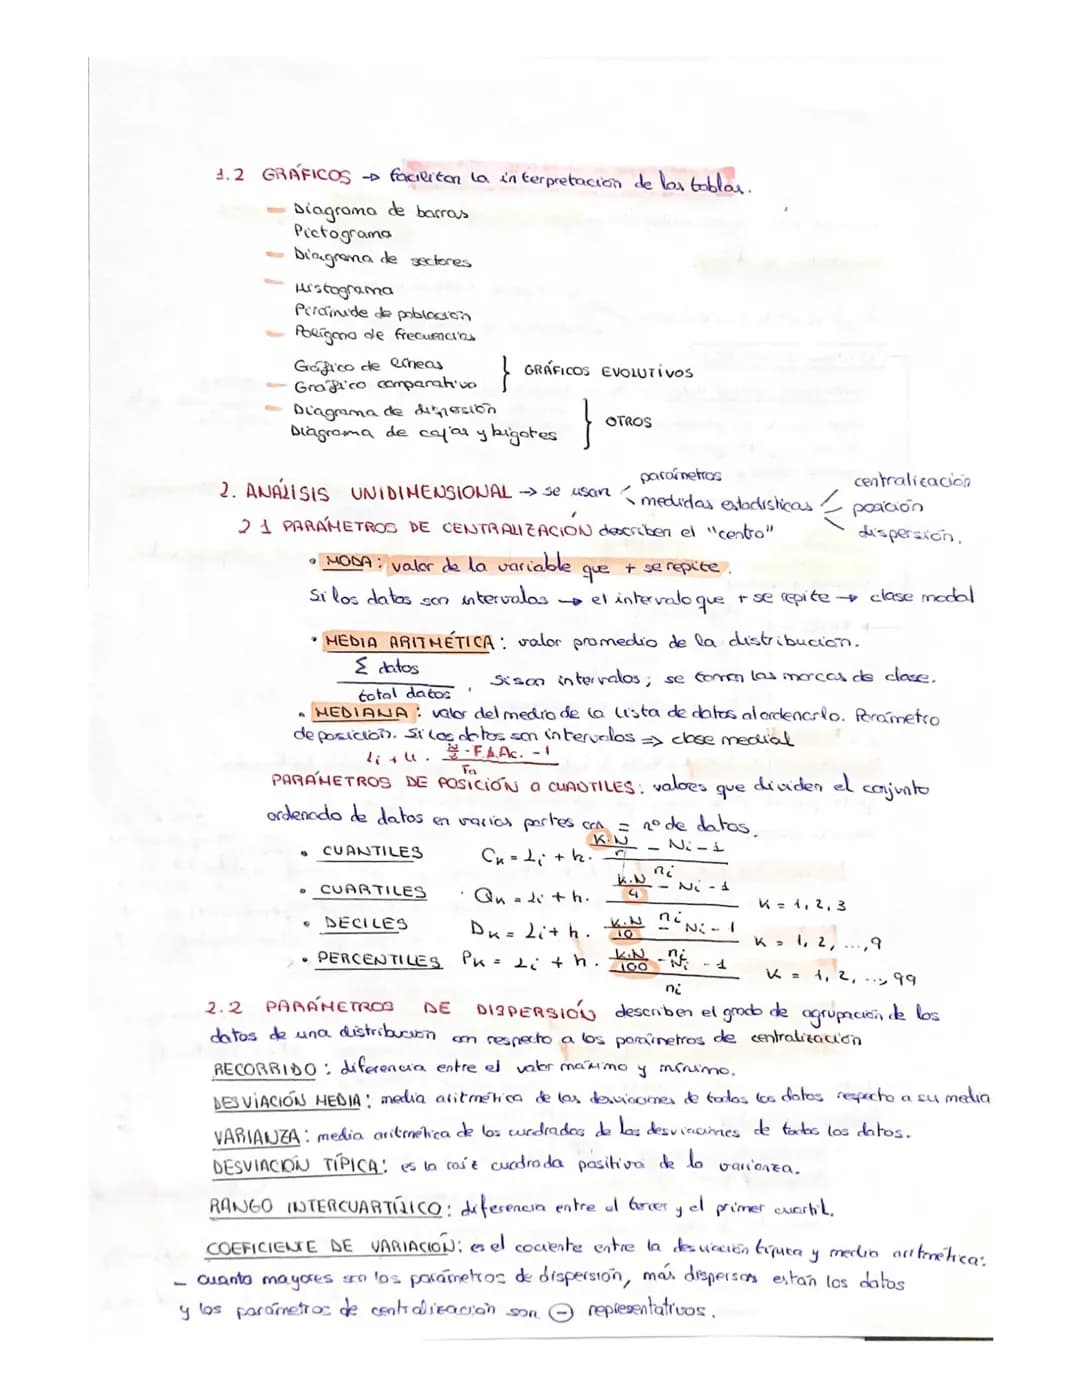 1.2 GRÁFICOS → facilitan la interpretación de las tablas.
Diagrama de barras
Pictograma
Diagrama de sectores
Histograma
Pirámide de población
Polígono de frecuencias
Gráfico de líneas
Gráfico comparativo } GRÁFICOS EVOLUTIVOS
Diagrama de dispersión
Diagrama de cajas y bigotes } OTROS
2. ANÁLISIS UNIDIMENSIONAL → se usan parámetros
medidas estadísticas centralización
posición
dispersión.
2 1 PARÁMETROS DE CENTRALIZACIÓN describen el "centro"
• MODA: valor de la variable que + se repite.
Si los datos son intervalos → el intervalo que + se repite → clase modal
• MEDIA ARITMÉTICA: valor promedio de la distribución.
Σ datos
total datos , Si son intervalos, se toman las marcas de clase.
• MEDIANA: valor del medio de la lista de datos al ordenarlo. Parámetro
de posición. Si los datos son intervalos => clase medial
PARÁMETROS DE POSICIÓN o CUANTILES: valores que dividen el conjunto
ordenado de datos en varias partes con = nº de datos.
• CUANTILES Cκ = Li + h. (K.N/r - Ni-1)/ni
• CUARTILES Qκ = Li + h. (K.N/4 - Ni-1)/ni K = 1, 2, 3
• DECILES Dκ = Li + h. (K.N/10 - Ni-1)/ni K = 1, 2, ..., 9
• PERCENTILES Pκ = Li + h. (K.N/100 - Ni-1)/ni K = 1, 2, ..., 99
2.2 PARÁMETROS DE DISPERSIÓN describen el grado de agrupación de los
datos de una distribución con respecto a los parámetros de centralización
RECORRIDO: diferencia entre el valor máximo y mínimo.
DESVIACIÓN MEDIA: media aritmética de las desviaciones de todos los datos respecto a su media
VARIANZA: media aritmética de los cuadrados de las desviaciones de todos los datos.
DESVIACIÓN TÍPICA: es la raíz cuadrada positiva de la varianza.
RANGO INTERCUARTÍLICO: diferencia entre el tercer y el primer cuartil.
COEFICIENTE DE VARIACIÓN: es el cociente entre la desviación típica y media aritmética:
- cuanto mayores son los parámetros de dispersión, más dispersos están los datos
y los parámetros de centralización son ⊖ representativos.